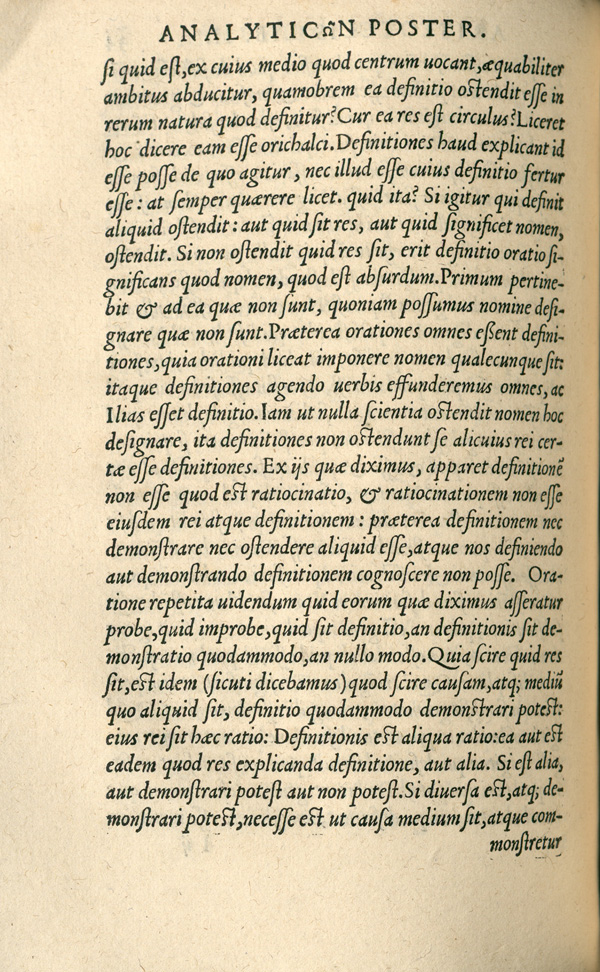 ANALYTICῶN POSTER.
ſi quid eſt,ex cuius medio quod centrum uocant,æquabiliter
ambitus abducitur, quamobrem ea definitio oſtendit eſſe in
rerum natura quod definitur?Cur ea res eſt circulus?Liceret
hoc dicere eam eſſe orichalci.Definitiones haud explicant id
eſſe poſſe de quo agitur, nec illud eſſe cuius definitio fertur
eſſe: at ſemper quærere licet. quid ita? Si igitur qui definit
aliquid oſtendit: aut quid ſit res, aut quid ſignificet nomen,
oſtendit. Si non oſtendit quid res ſit, erit definitio oratio ſi-
gnificans quod nomen, quod eſt abſurdum.Primum pertine-
bit & ad ea quæ non ſunt, quoniam poſſumus nomine deſi-
gnare quæ non ſunt.Præterea orationes omnes eßent defini-
tiones,quia orationi liceat imponere nomen qualecunque ſit:
itaque definitiones agendo uerbis effunderemus omnes, ac
Ilias eſſet definitio.Iam ut nulla ſcientia oſtendit nomen hoc
deſignare, ita definitiones non oſtendunt ſe alicuius rei cer-
tæ eſſe definitiones. Ex ijs quæ diximus, apparet definitionē
non eſſe quod eſt ratiocinatio, & ratiocinationem non eſſe
eiuſdem rei atque definitionem: præterea definitionem nec
demonſtrare nec oſtendere aliquid eſſe,atque nos definiendo
aut demonſtrando definitionem cognoſcere non poſſe. Ora-
tione repetita uidendum quid eorum quæ diximus aſſeratur
probe,quid improbe,quid ſit definitio,an definitionis ſit de-
monſtratio quodammodo,an nullo modo.Quia ſcire quid res
ſit,eſt idem (ſicuti dicebamus) quod ſcire cauſam,atq; mediū
quo aliquid ſit, definitio quodammodo demonſtrari poteſt:
eius rei ſit hæc ratio: Definitionis eſt aliqua ratio:ea aut eſt
eadem quod res explicanda definitione, aut alia. Si eſt alia,
aut demonſtrari poteſt aut non poteſt.Si diuerſa eſt,atq; de-
monſtrari poteſt,neceſſe eſt ut cauſa medium ſit,atque com-
monſtretur